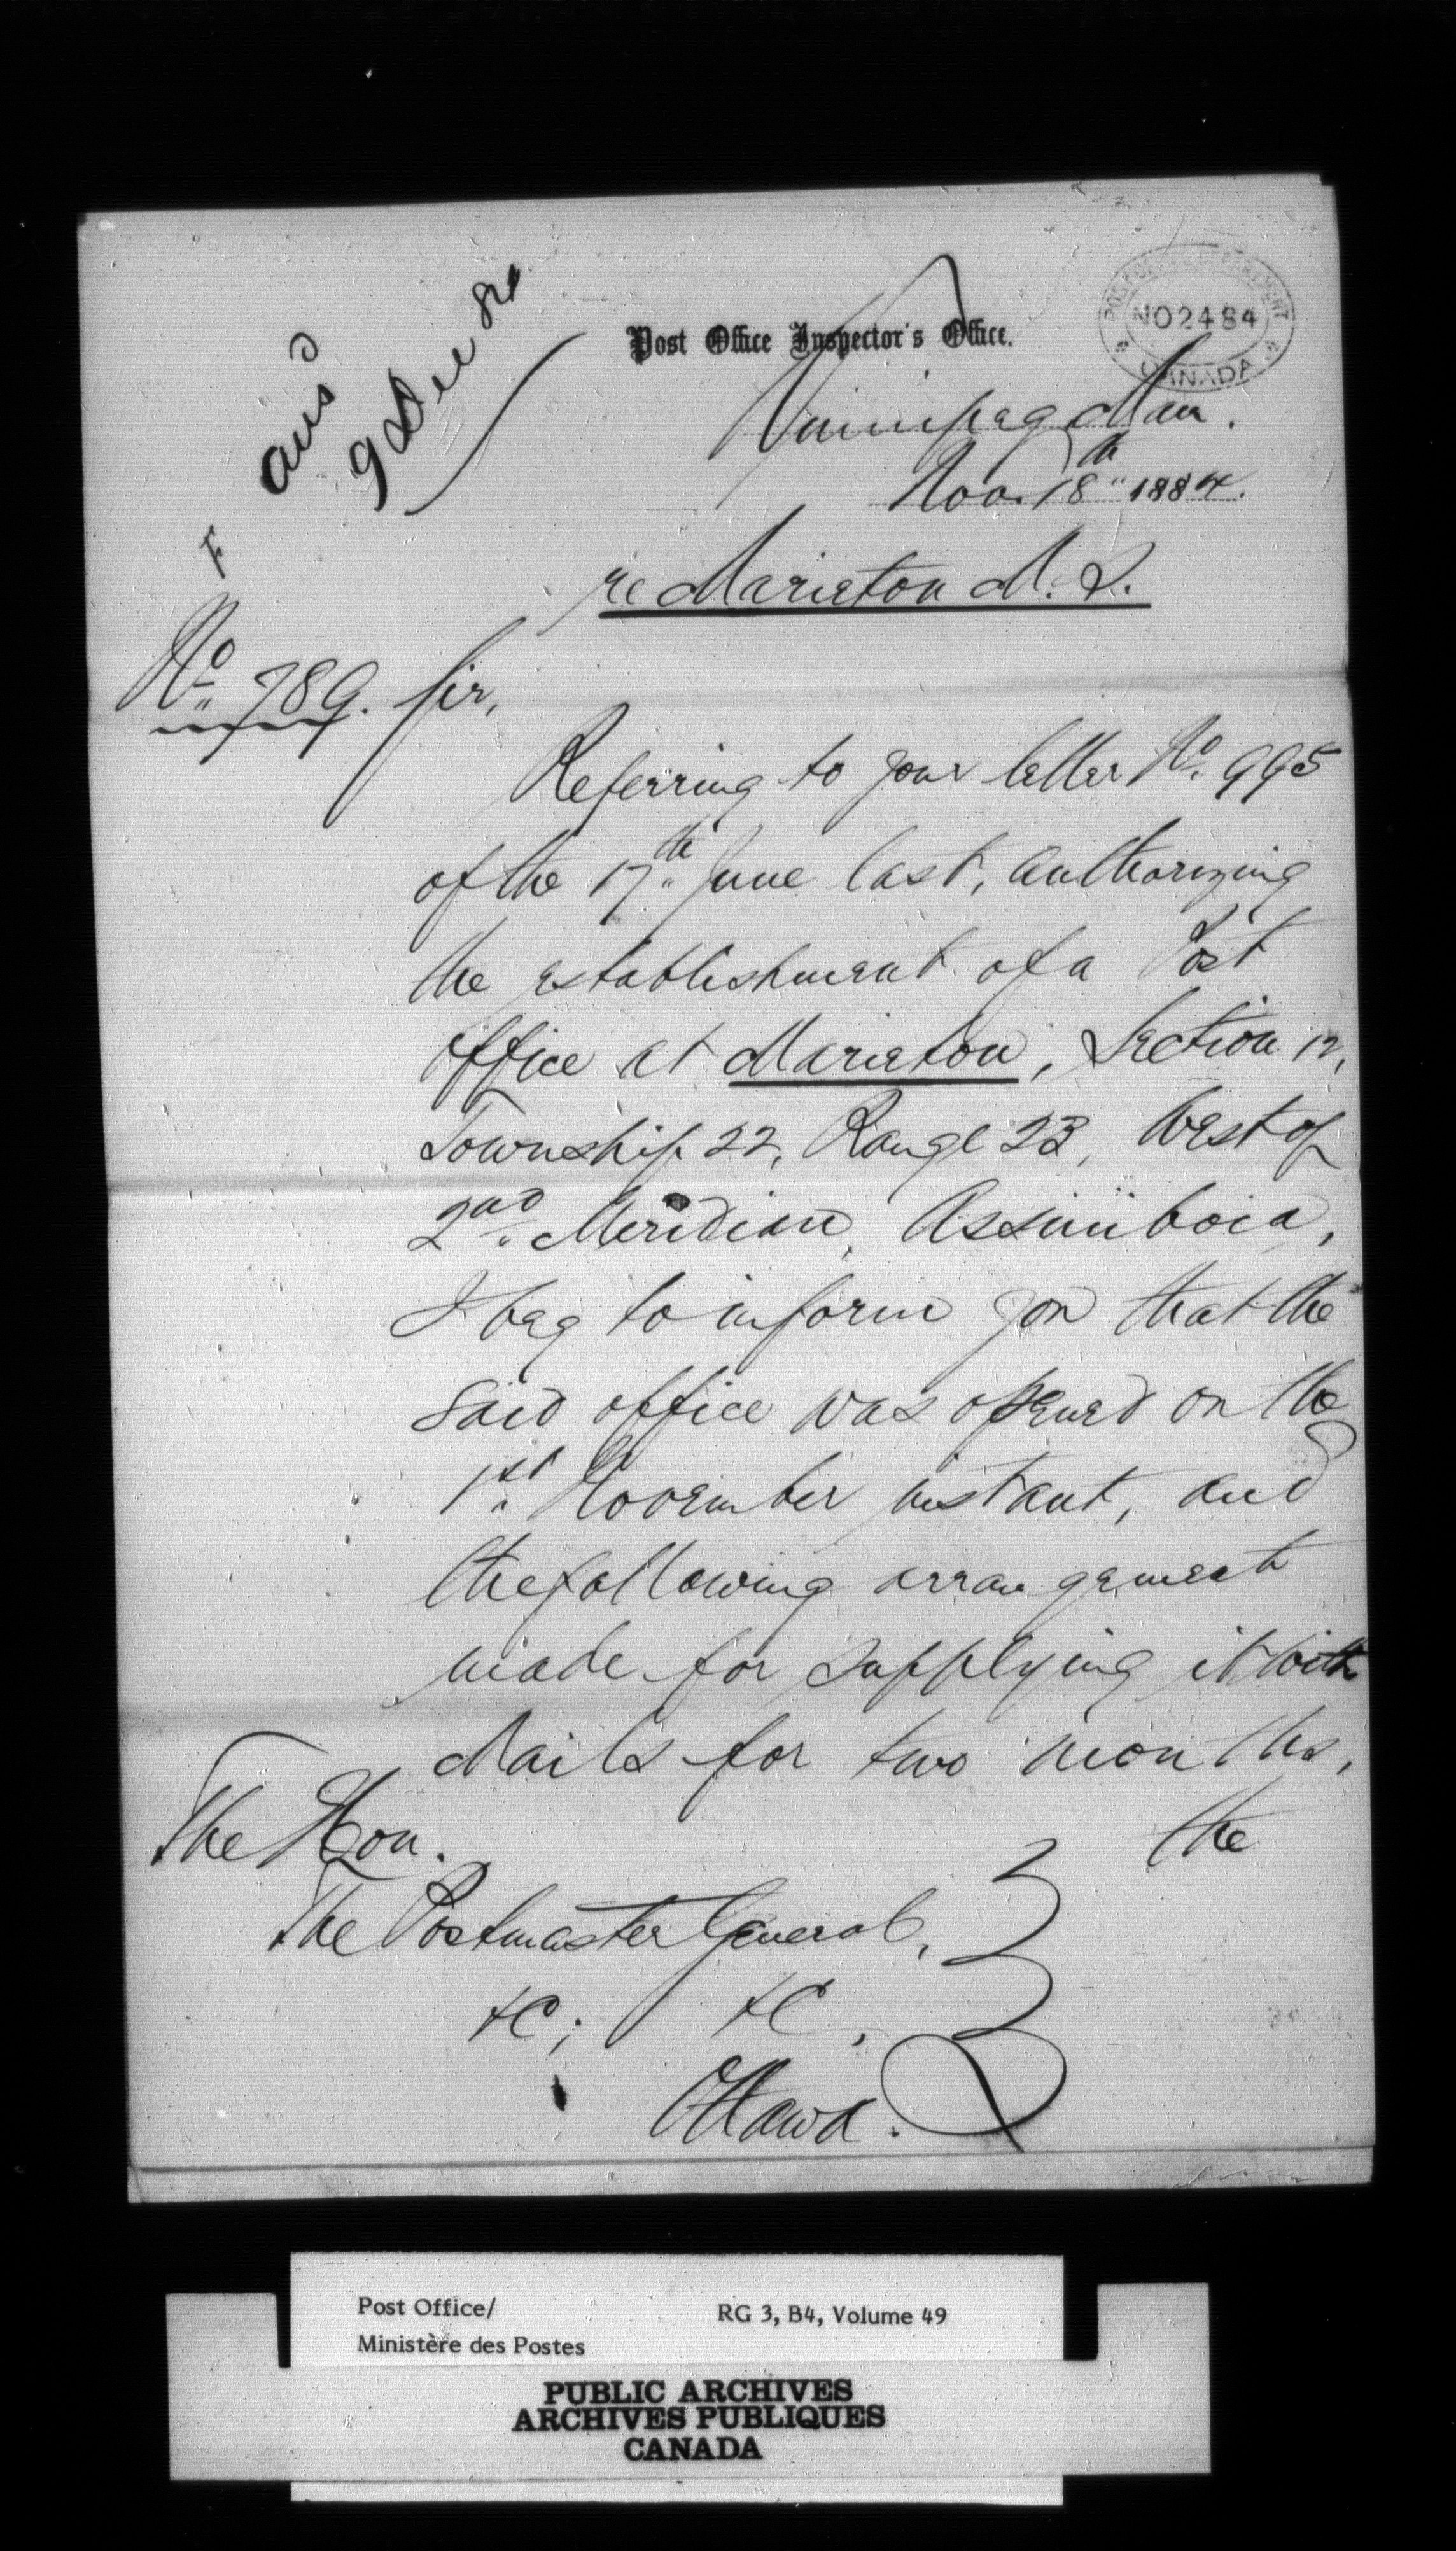 POST OFFICE DEPARTMENT
NO 24 84
CANADA
ansd
9 Dec 84
Post Office Inspector's Office.
Winnipeg Man.
Nov. 18th 1884.
re Marieton M.S.
No 789. Sir,
Referring to your letter No. 995
of the 17th June last, authorizing
the establishment of a Post
Office at Marieton, Section 12,
Township 22, Range 23, West of
2nd Meridian, Assiniboia,
I beg to inform you that the
said office was opened on the
1st November instant, and
the following arrangement
made for supplying it with
Mails for two months,
the
The Hon.
The Postmaster General,
&C; &C,
Ottawa.
Post Office/
Ministère des Postes
RG 3, B4, Volume 49
PUBLIC ARCHIVES
ARCHIVES PUBLIQUES
CANADA